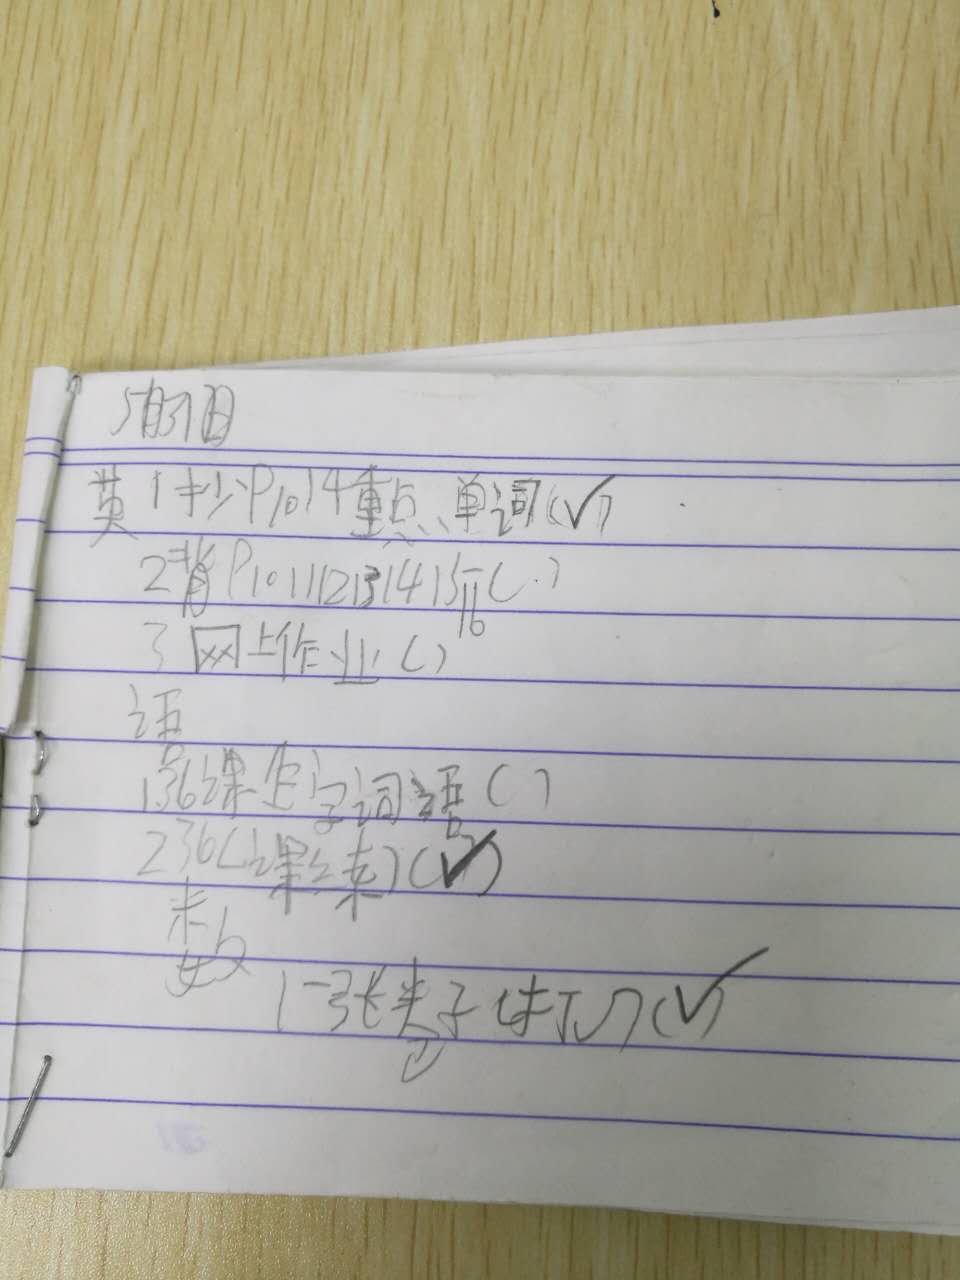 5月31日
英 1 抄P10 14重点、单词(✓)
2 背P10 11 12 13 14 15 16( )
3 网上作业( )
语
1 36课生字词语( )
2 36(课结束)(✓)
数
1 一张卷子(✓)